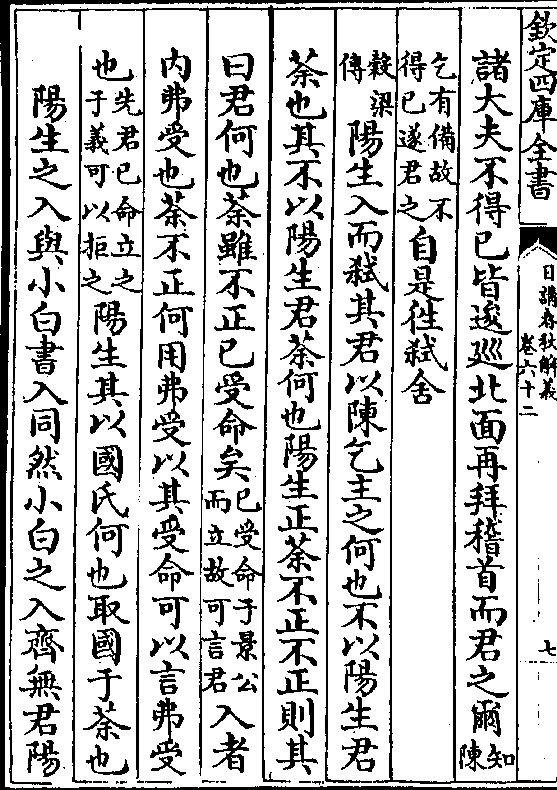 欽定四庫全書
日講春秋解義
卷六十二
七
諸大夫不得已皆逡巡北面再拜稽首而君之爾知陳
乞有備故不得已遂君之自是徃弑舍
穀梁傳陽生入而弑其君以陳乞主之何也不以陽生君
荼也其不以陽生君荼何也陽生正荼不正不正則其
曰君何也荼雖不正已受命矣已受命于景公而立故可言君入者
内弗受也荼不正何用弗受以其受命可以言弗受
也先君已命立之于義可以拒之陽生其以國氏何也取國于荼也
陽生之入與小白書入同然小白之入齊無君陽